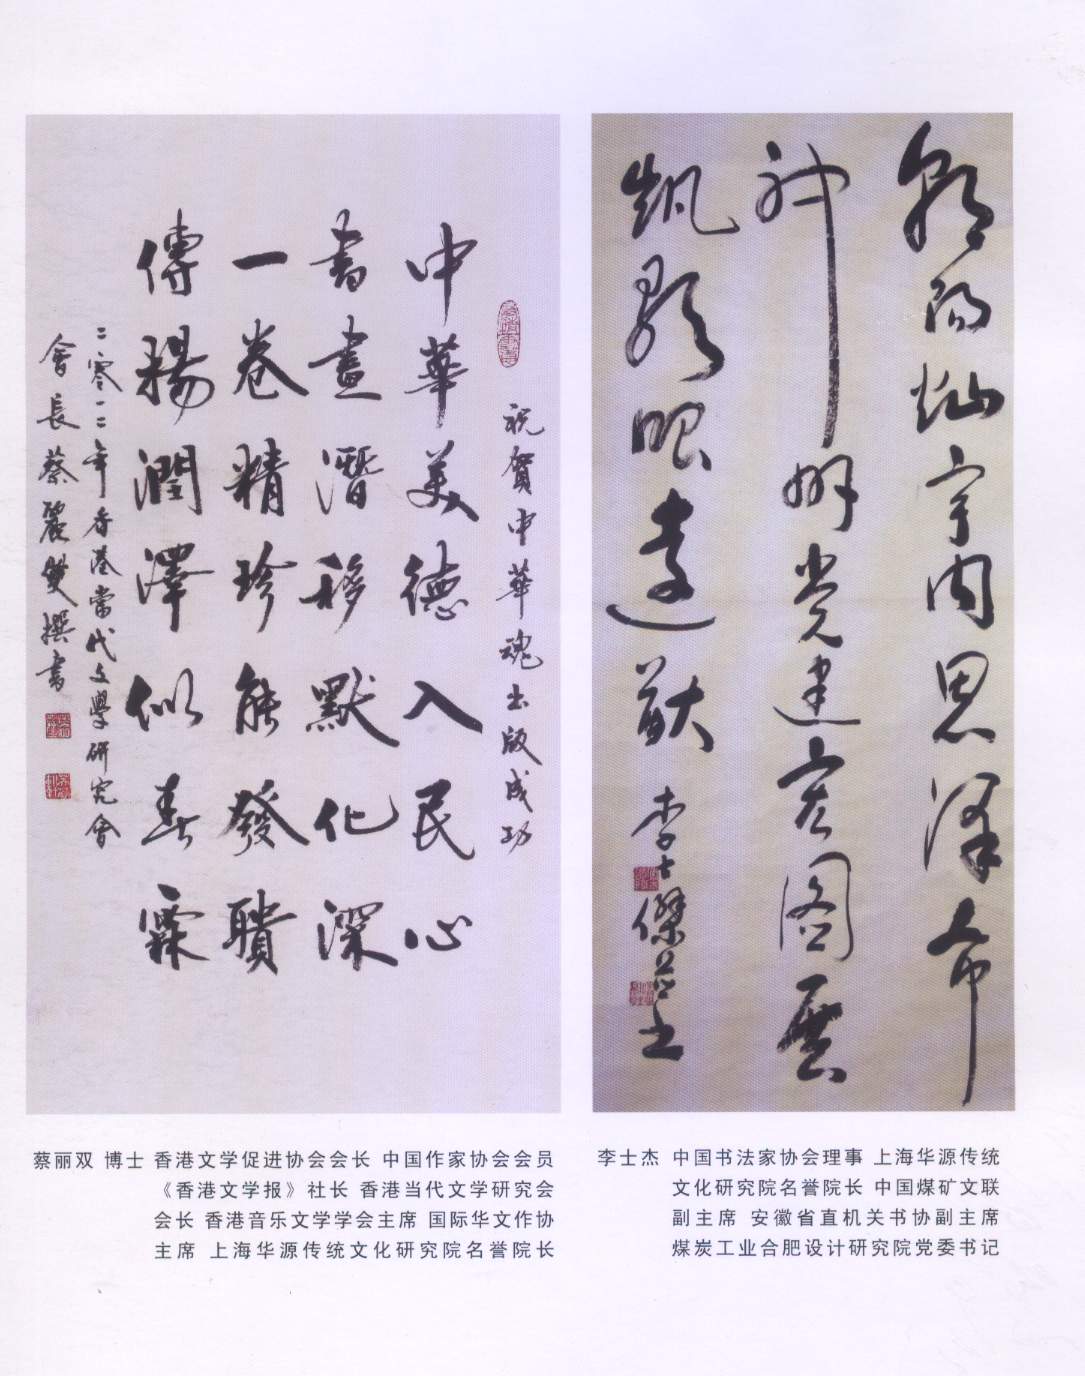 祝賀中華魂出版成功
中華美德入民心
書畫潛移默化深
一卷精珍能發聵
傳揚潤澤似春霖
二零一二年香港當代文學研究會
會長蔡麗雙撰書
朝阳灿宇内恩泽布
神州党建宏图展
歌昭远猷
李士傑並书
蔡丽双 博士 香港文学促进协会会长 中国作家协会会员
《香港文学报》社长 香港当代文学研究会
会长 香港音乐文学学会主席 国际华文作协
主席 上海华源传统文化研究院名誉院长
李士杰 中国书法家协会理事 上海华源传统
文化研究院名誉院长 中国煤矿文联
副主席 安徽省直机关书协副主席
煤炭工业合肥设计研究院党委书记